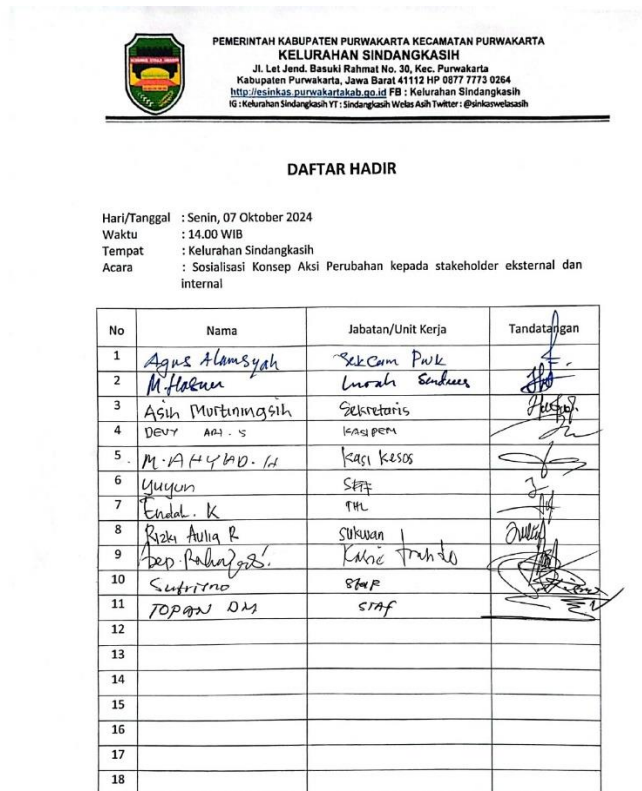 PEMERINTAH KABUPATEN PURWAKARTA KECAMATAN PURWAKARTA
KELURAHAN SINDANGKASIH
Jl. Let Jend. Basuki Rahmat No. 30, Kec. Purwakarta
Kabupaten Purwakarta, Jawa Barat 41112 HP 0877 7773 0264
http://esinkas.purwakartakab.go.id FB : Kelurahan Sindangkasih
IG : Kelurahan Sindangkasih YT : Sindangkasih Welas Asih Twitter : @sinkaswelasasih
DAFTAR HADIR
Hari/Tanggal : Senin, 07 Oktober 2024
Waktu : 14.00 WIB
Tempat : Kelurahan Sindangkasih
Acara : Sosialisasi Konsep Aksi Perubahan kepada stakeholder eksternal dan
internal
No Nama Jabatan/Unit Kerja Tandatangan
1 Agus Alamsyah Sekcam Pwk
2 M.
3 Asih Murtiningsih Sekretaris
4 DEVY ARI . S KASIPEM
5 M. AHYAD. H Kasi Kesos
6 Yuyun
7 Endah. K THL
8 Rizki Aulia R Sukwan
9
10 Sutrisno Staf
11 TOPAN DM STAF
12
13
14
15
16
17
18